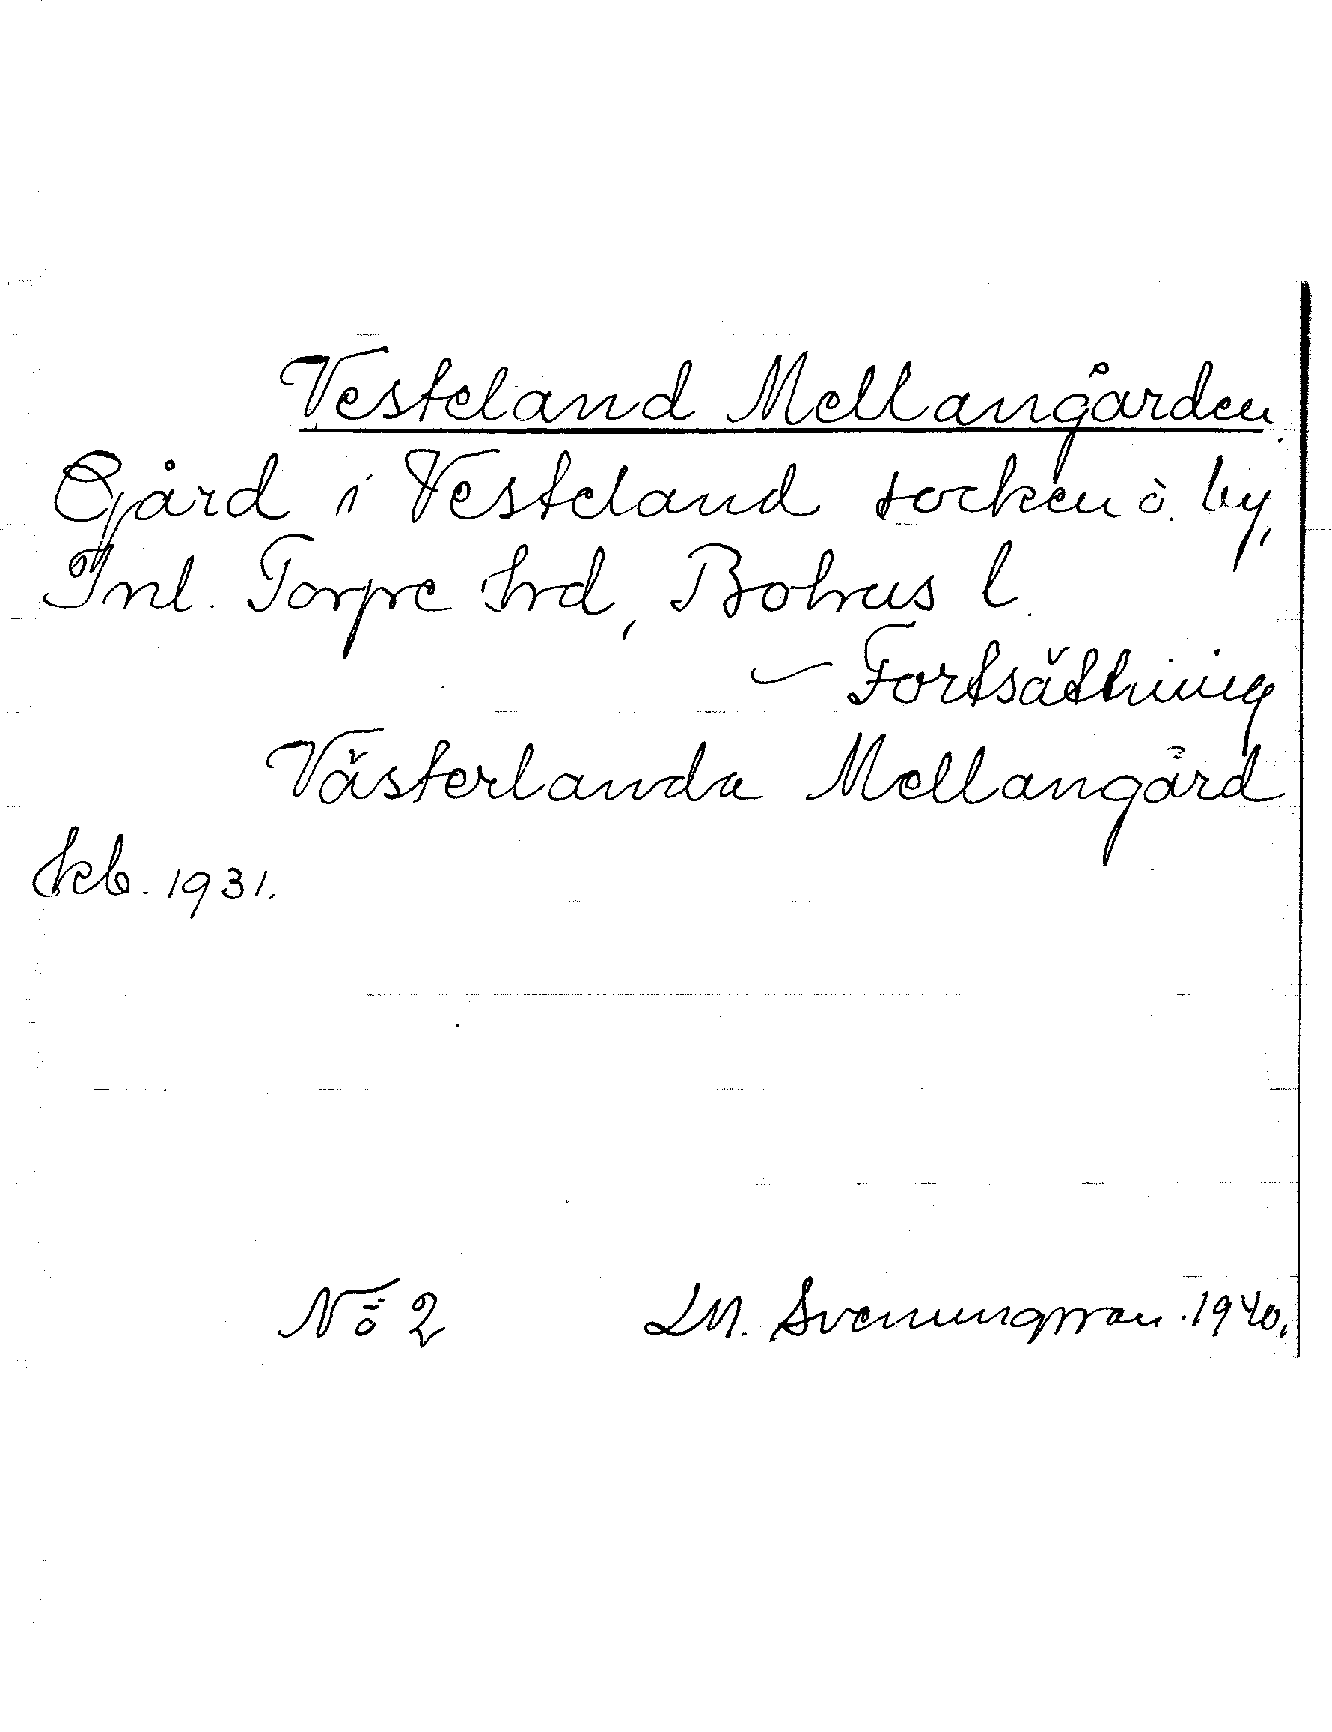 Vesteland Mellangården.
Gård i Vesteland socken o. by,
Inl. Torpe hrd, Bohus l.
– Fortsättning
Västerlanda Mellangård
Jkb. 1931.
No 2 LM. Svenungsson. 1940.